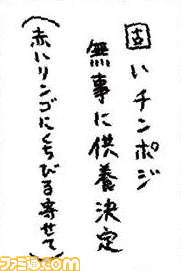 固いチンポジ
無事に供養決定
(赤いリンゴにくちびる寄せて)
ファミ通.com